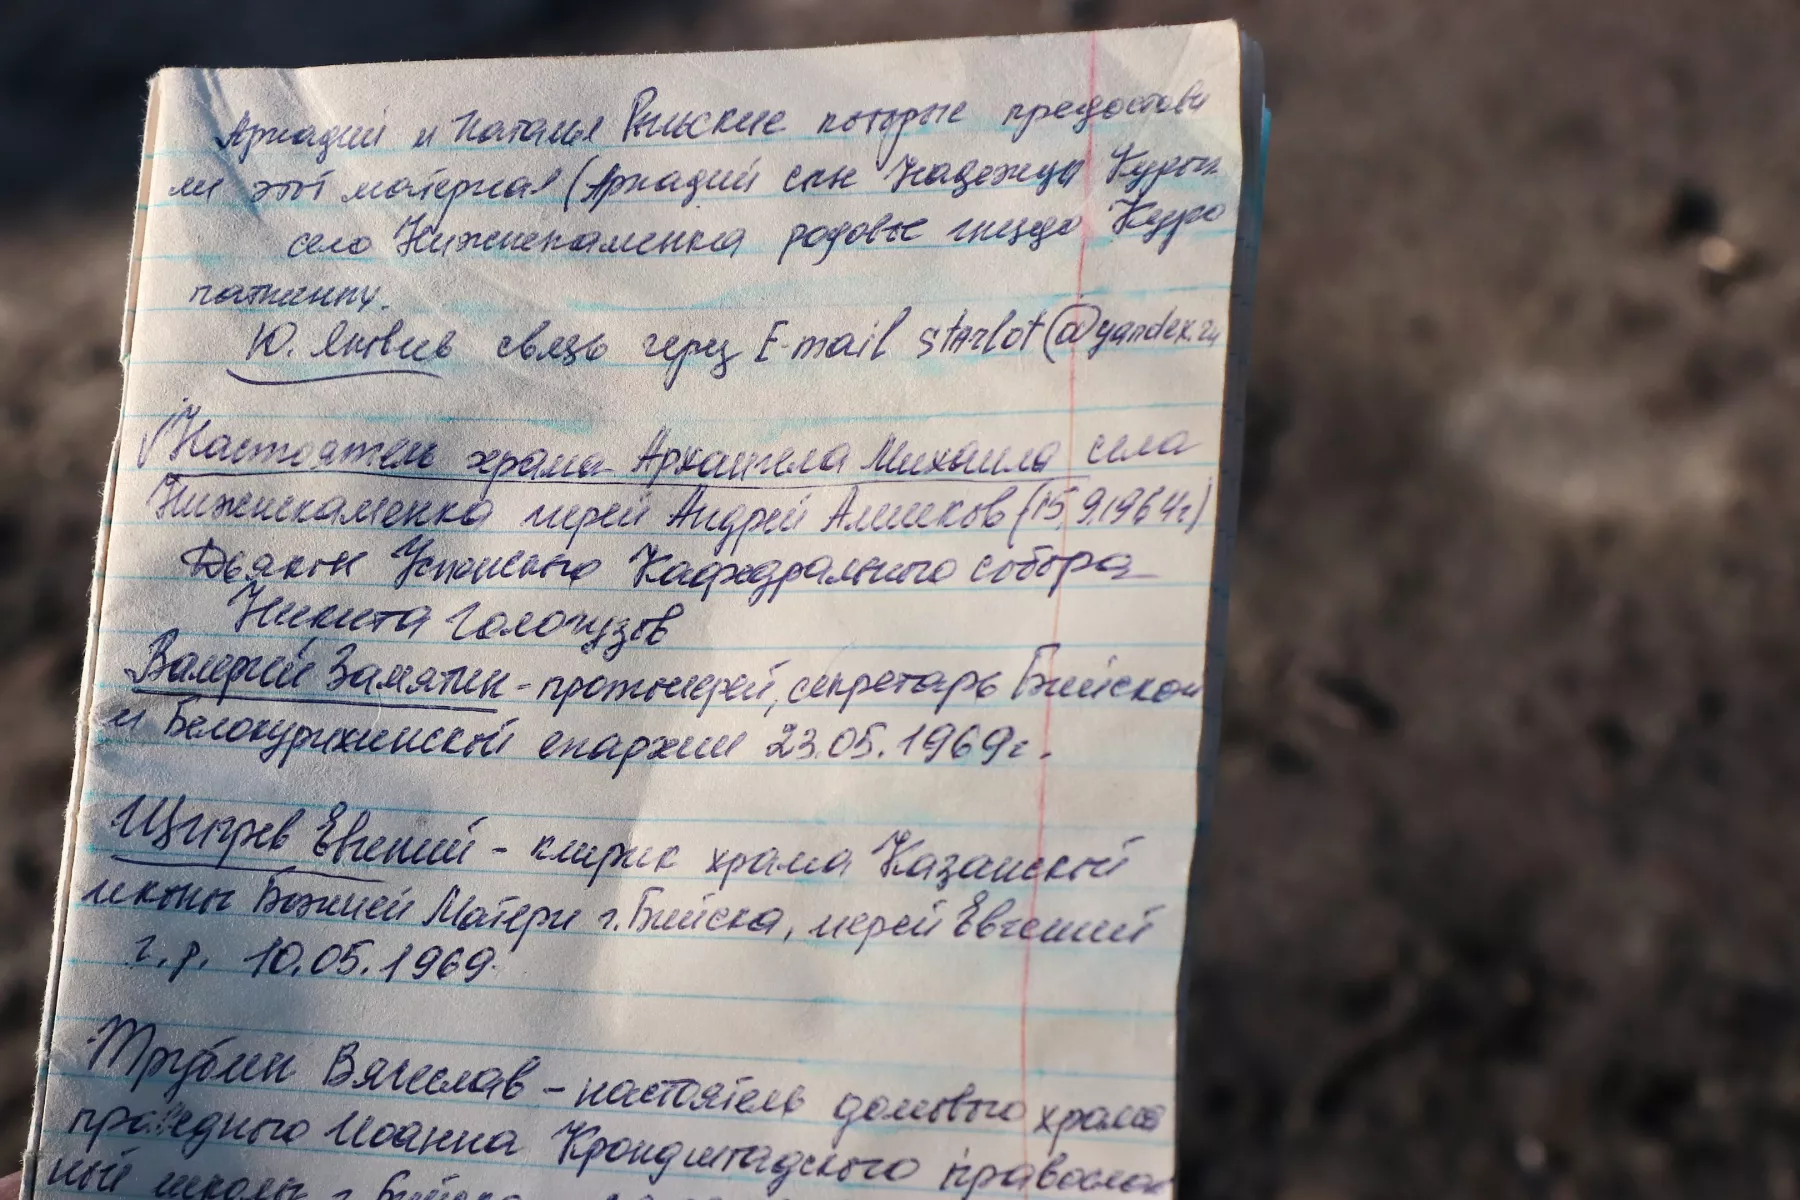 Аркадий и Наталья Рыльские которые предостави
ли этот материал (Аркадий сын Надежды
село Нижнекаменка родовые гнездо Куро
паткину.
Ю. Яковлев связь через E-mail starlot@yandex.ru
Настоятель храма Архангела Михаила села
Нижнекаменка иерей Андрей (15.9.1964г)
Дьякон Успенского Кафедрального собора
Никита Гологузов
Валерий Замятин - протоиерей, секретарь Бийской
и Белокурихинской епархии 23.05.1969г.
Евгений - клирик храма Казанской
иконы Божией Матери г. Бийска, иерей Евгений
г.р. 10.05.1969.
Трубин Вячеслав - настоятель домового храма
праведного Иоанна Кронштадского православ
ный школы г. Бийска